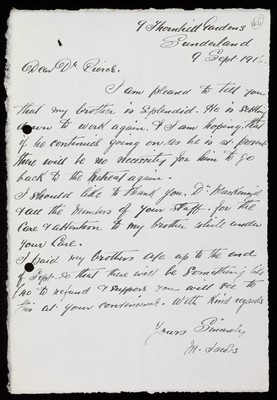 7 Thornhill Gardens
Sunderland
9 Sept 191
Dear Dr Pierce.
I am pleased to tell you
that my brother is splendid. He is settling
down to work again. & I am hoping that
if he continues going on as he is at present
there will be no necessity for him to go
back to the Retreat again.
I should like to thank you, Dr Mackenzie
& all the Members of your Staff. for the
Care & attention to my brother whilst under
your Care.
I paid my brothers a/c up to the end
of Sept. So that there will be something like
to refund & suppose you will see to
this at your convenience. With Kind regards
Yours Sincerely
M. Jacobs